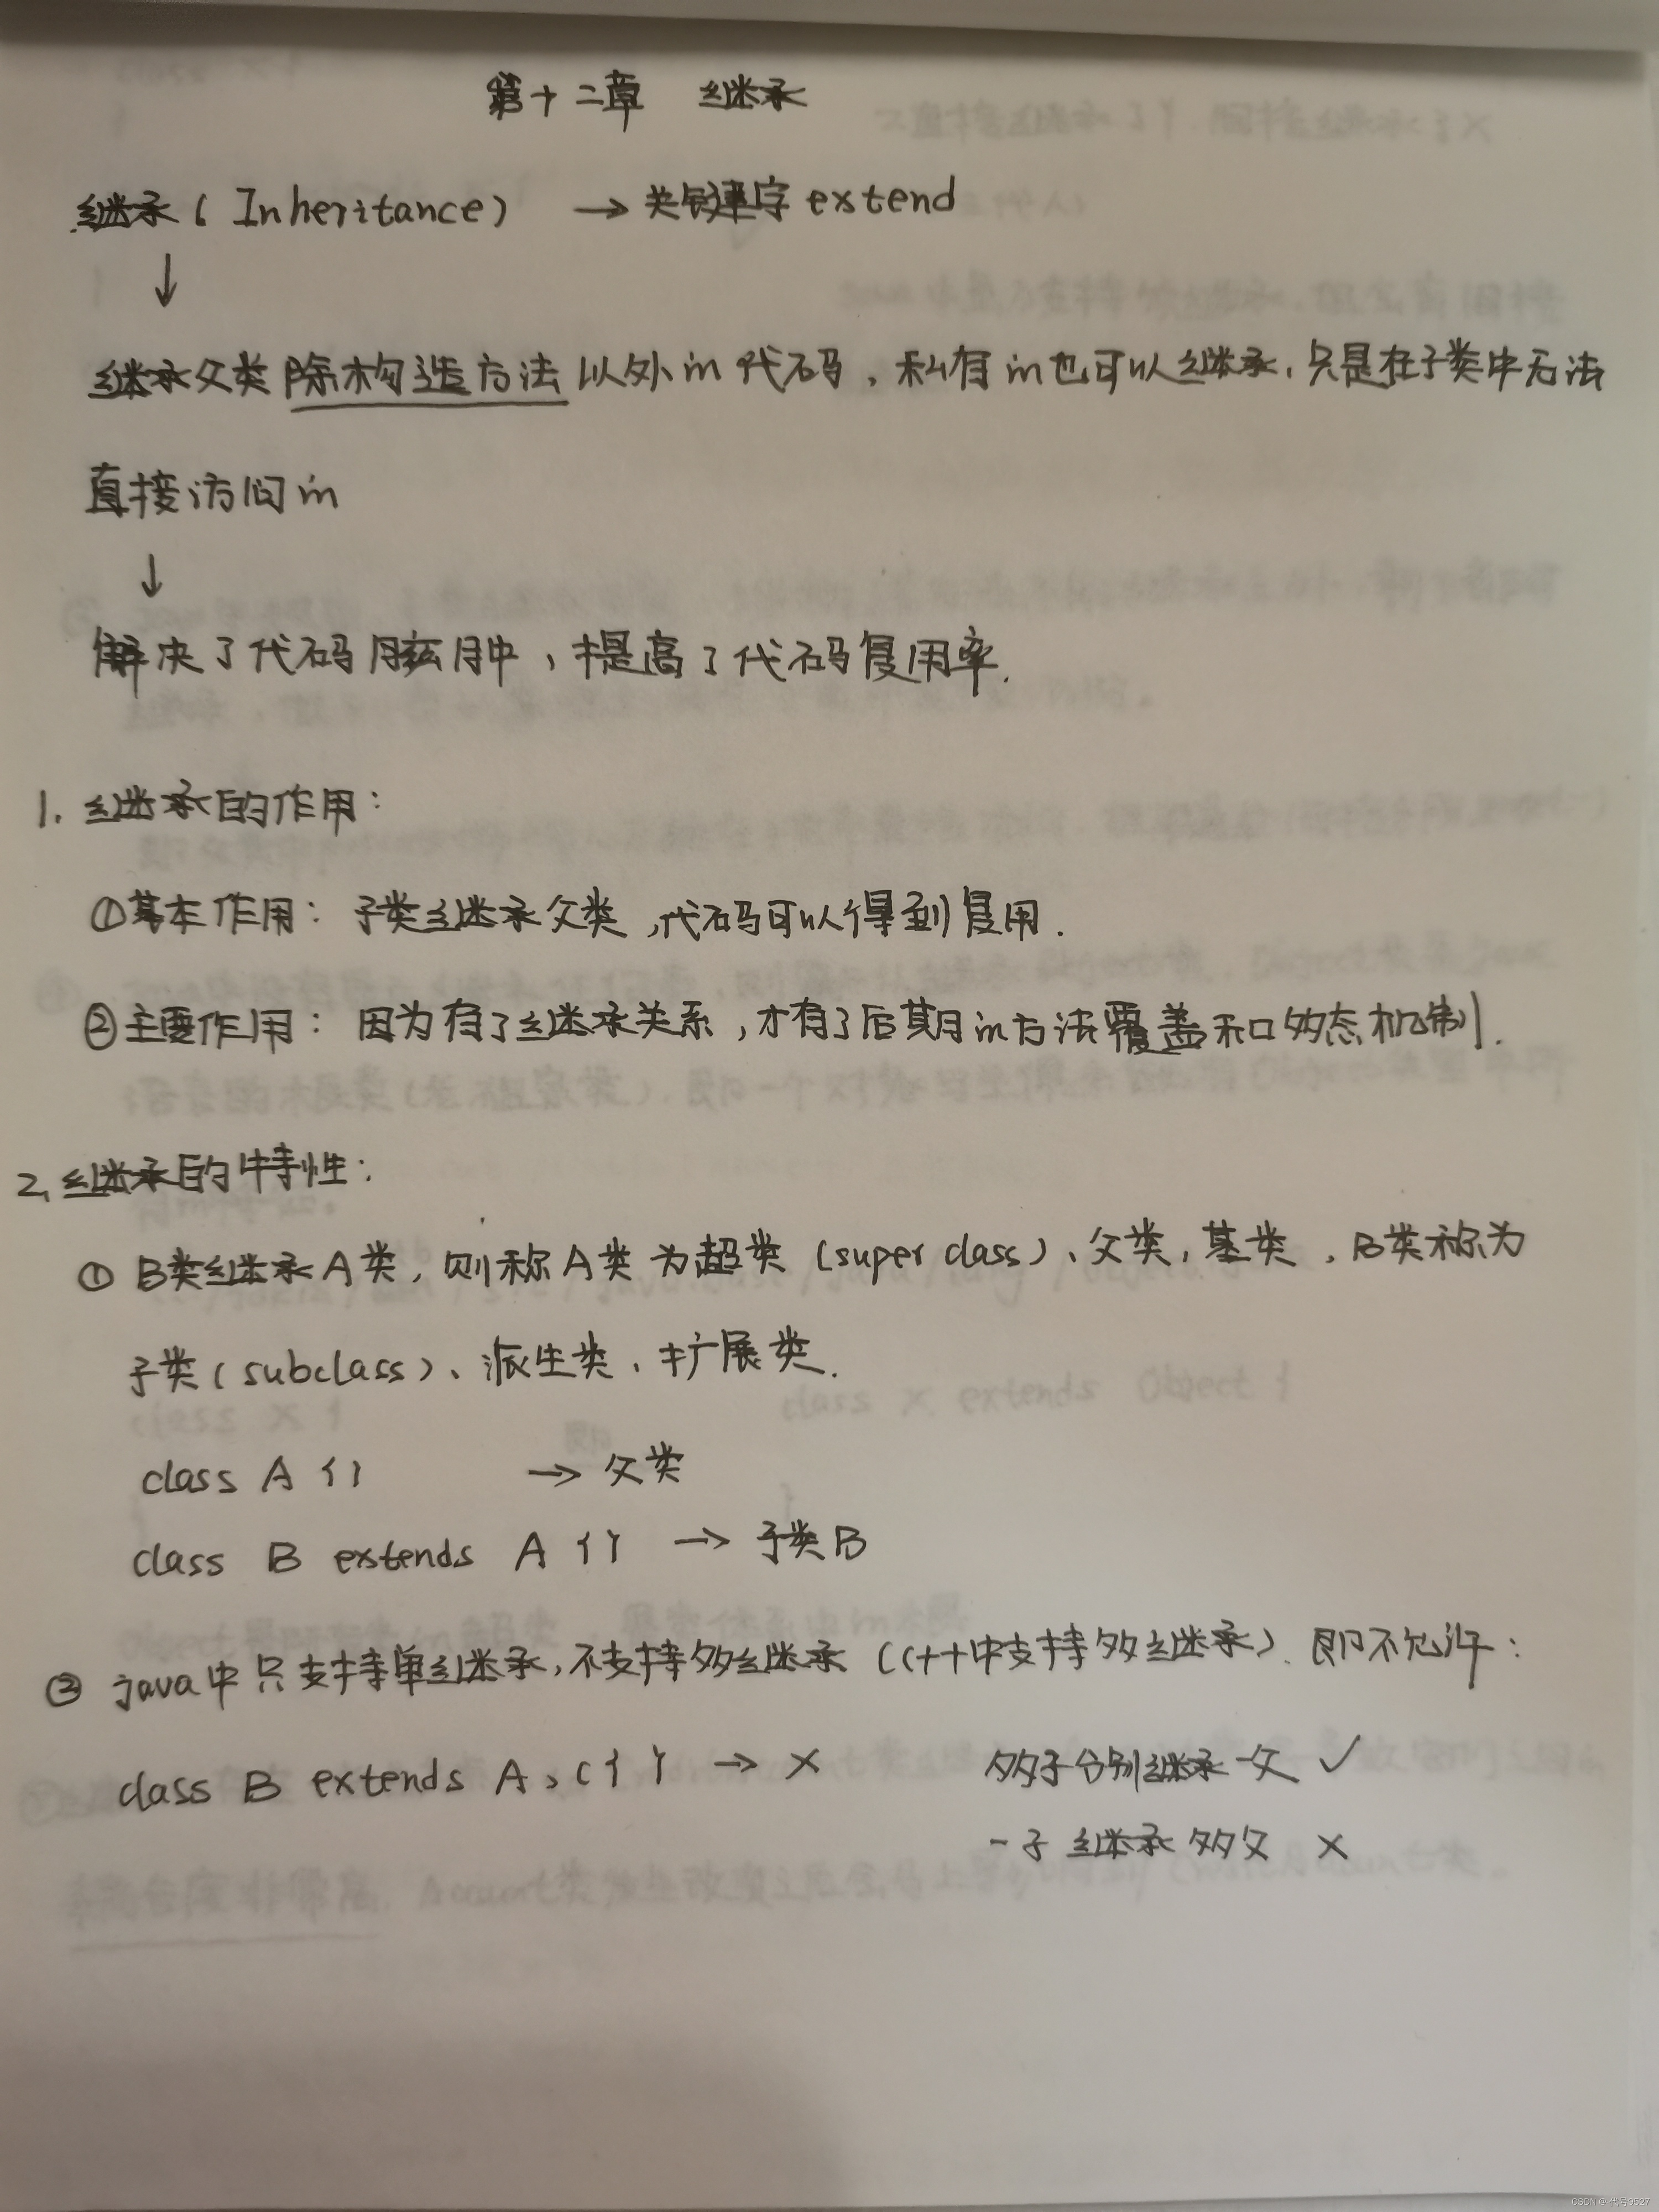 第十二章 继承
继承(Inheritance) → 关键字 extend
↓
继承父类除构造方法以外in代码,私有in也可以继承,只是在子类中无法
直接访问in
↓
解决了代码臃肿,提高了代码复用率.
1. 继承的作用:
①基本作用: 子类继承父类,代码可以得到复用.
②主要作用: 因为有了继承关系,才有了后期in方法覆盖和多态机制.
2、继承的特性:
① B类继承A类,则称A类为超类(superclass)、父类,基类,B类称为
子类(subclass)、派生类、扩展类.
class A {} → 父类
class B extends A {} → 子类B
② java中只支持单继承,不支持多继承(C++中支持多继承).即不允许:
class B extends A,C{} → × 多子分别继承一父 ✓
一子继承多父 ×
CSDN @代号9527